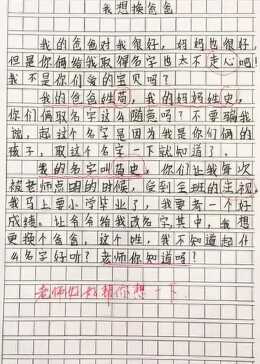 我想换爸爸
我的爸爸对我很好，妈妈也很好，
但是你俩给我取得名字也太不走心吧！
我不是你们爱的宝贝吗？
我的爸爸姓苟，我的妈妈姓史，
你们俩取名字这么随意吗？不要骗我
说，起这个名字是因为我是你们俩的
孩子，取这个名字一下就知道了。
我的名字叫苟史，你们让我每次
被老师点名的时候，受到全班的注视，
我马上要小学毕业了，我要考一个好
成绩。让爷爷给我改名字，其中，我想
更换个爸爸，这个姓，我不知道起什
么名字好听？老师你知道吗？
老师好好想你想一下